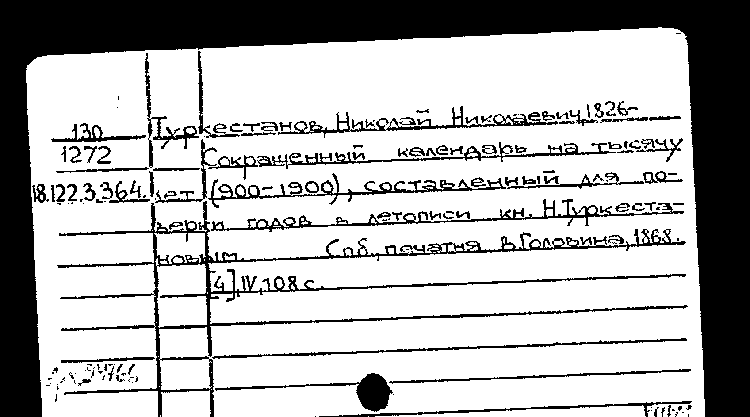 130 Туркестанов, Николай Николаевич, 1826-
1272 Сокращенный календарь на тысячу
18.122.3.364. лет (900-1900), составленный для по-
верки годов в летописи кн. Н.Туркеста-
новым. Спб., печатня В.Головина, 1868.
[4], IV, 108 с.